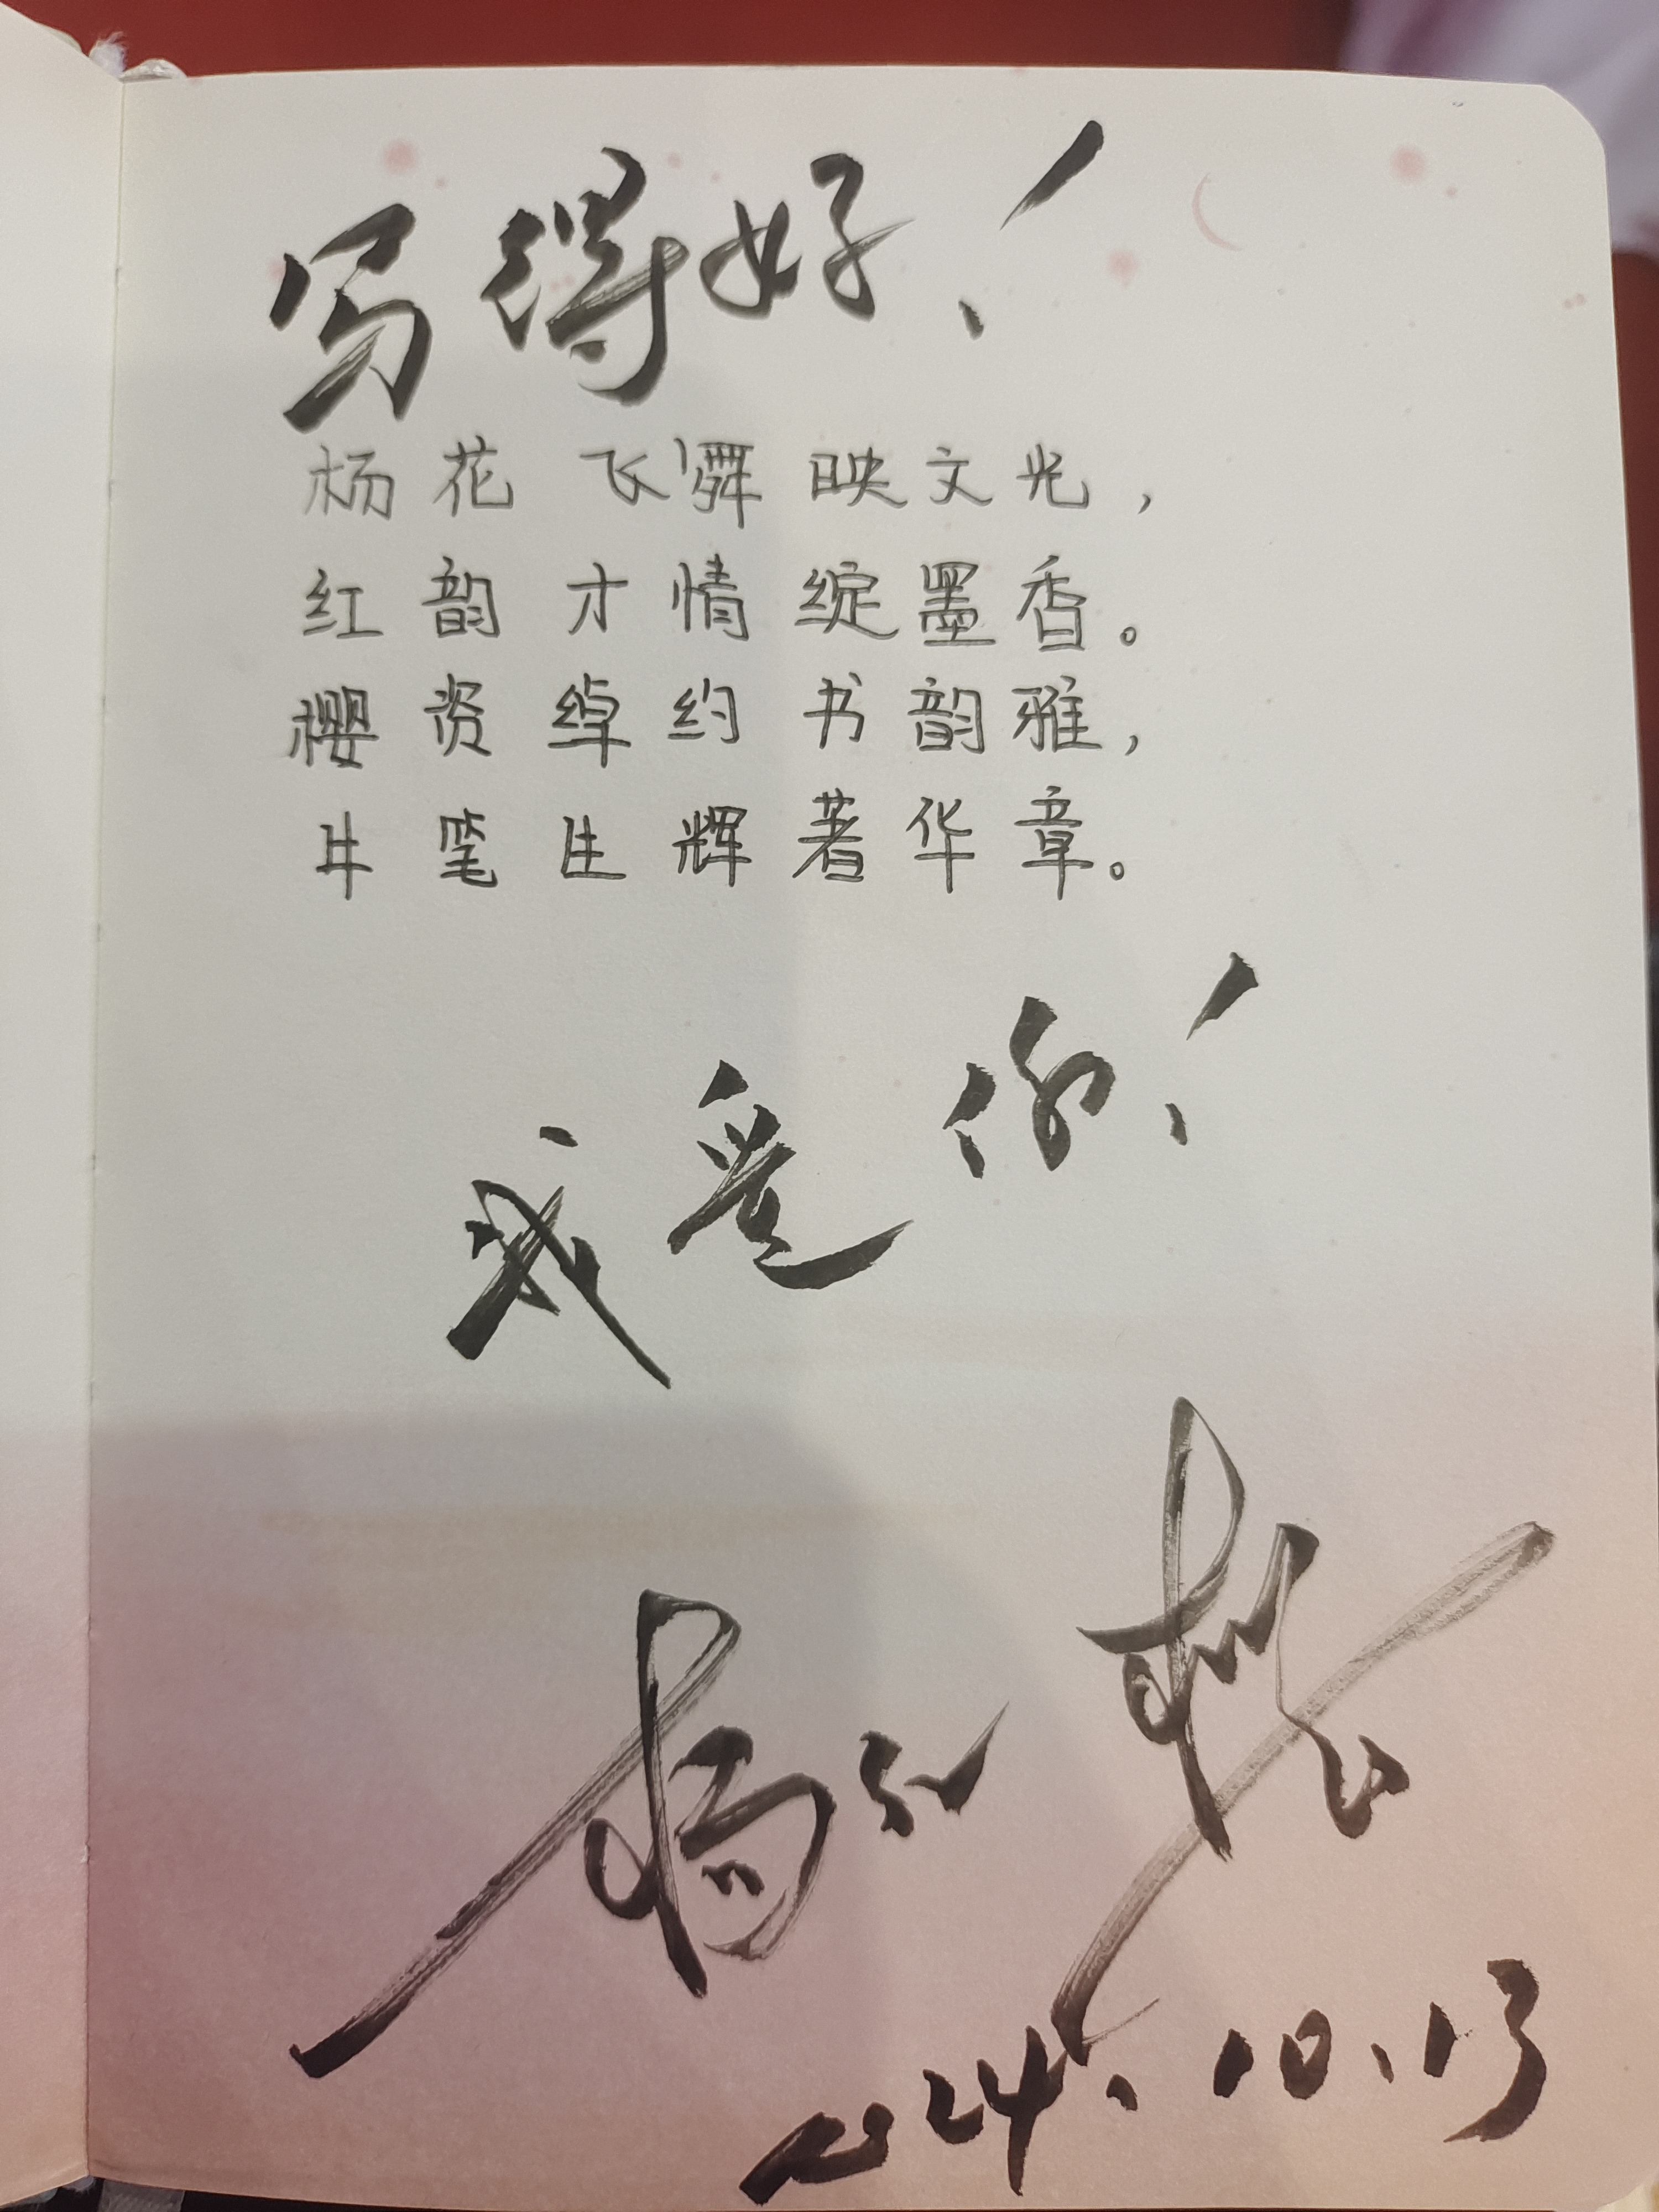 写得好！
杨花飞舞映文光，
红韵才情绽墨香。
樱资绰约书韵雅，
牛笔生辉著华章。
我爱你！
杨红樱
2024.10.13